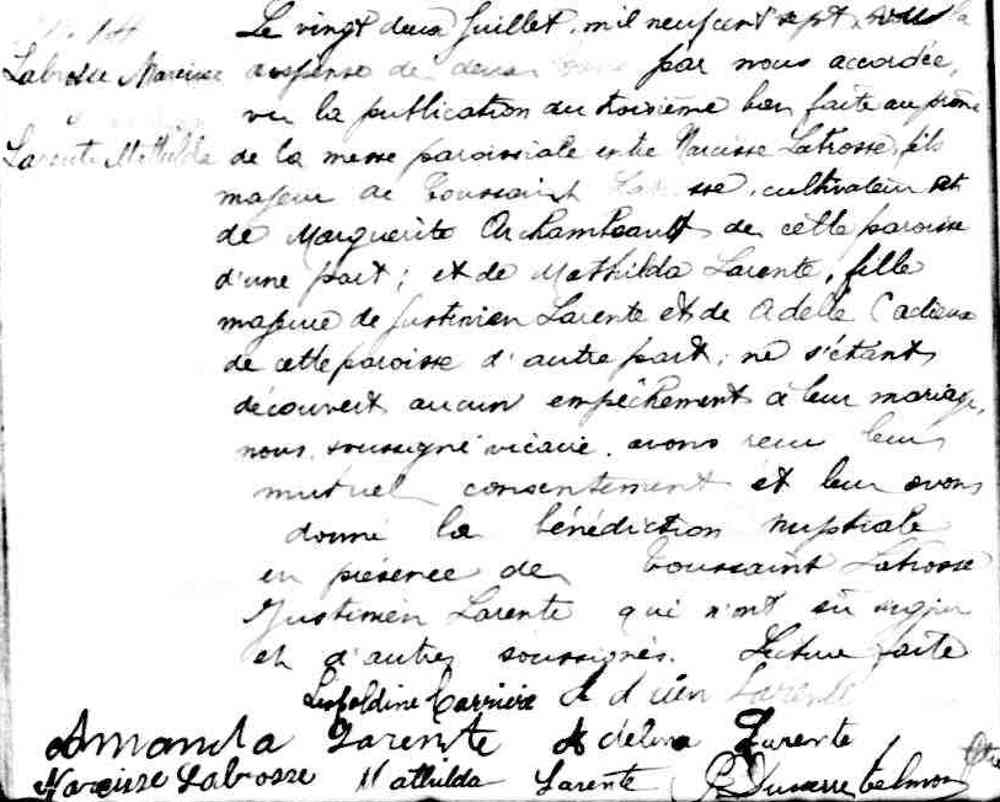 Le vingt deux Juillet, mil neuf cent sept, vu la
Labrosse Narcisse
dispense de deux bans par nous accordée,
vu la publication du troisième ban faite au prône
Larente Mathilda
de la messe paroissiale entre Narcisse Labrosse, fils
majeur de Toussaint Labrosse, cultivateur et
de Marguerite Archambeault de cette paroisse
d'une part ; et de Mathilda Larente, fille
majeure de Justinien Larente et de Adelle Cadieux
de cette paroisse d'autre part ; ne s'étant
découvert aucun empêchement à leur mariage,
nous, soussigné vicaire, avons reçu leur
mutuel consentement et leur avons
donné la bénédiction nuptiale
en présence de Toussaint Labrosse
Justinien Larente qui n'ont su signer
et d'autres soussignés. Lecture faite
Léopoldine Carrière Larente
Amanda Larente Adélina Larente
Narcisse Labrosse Mathilda Larente